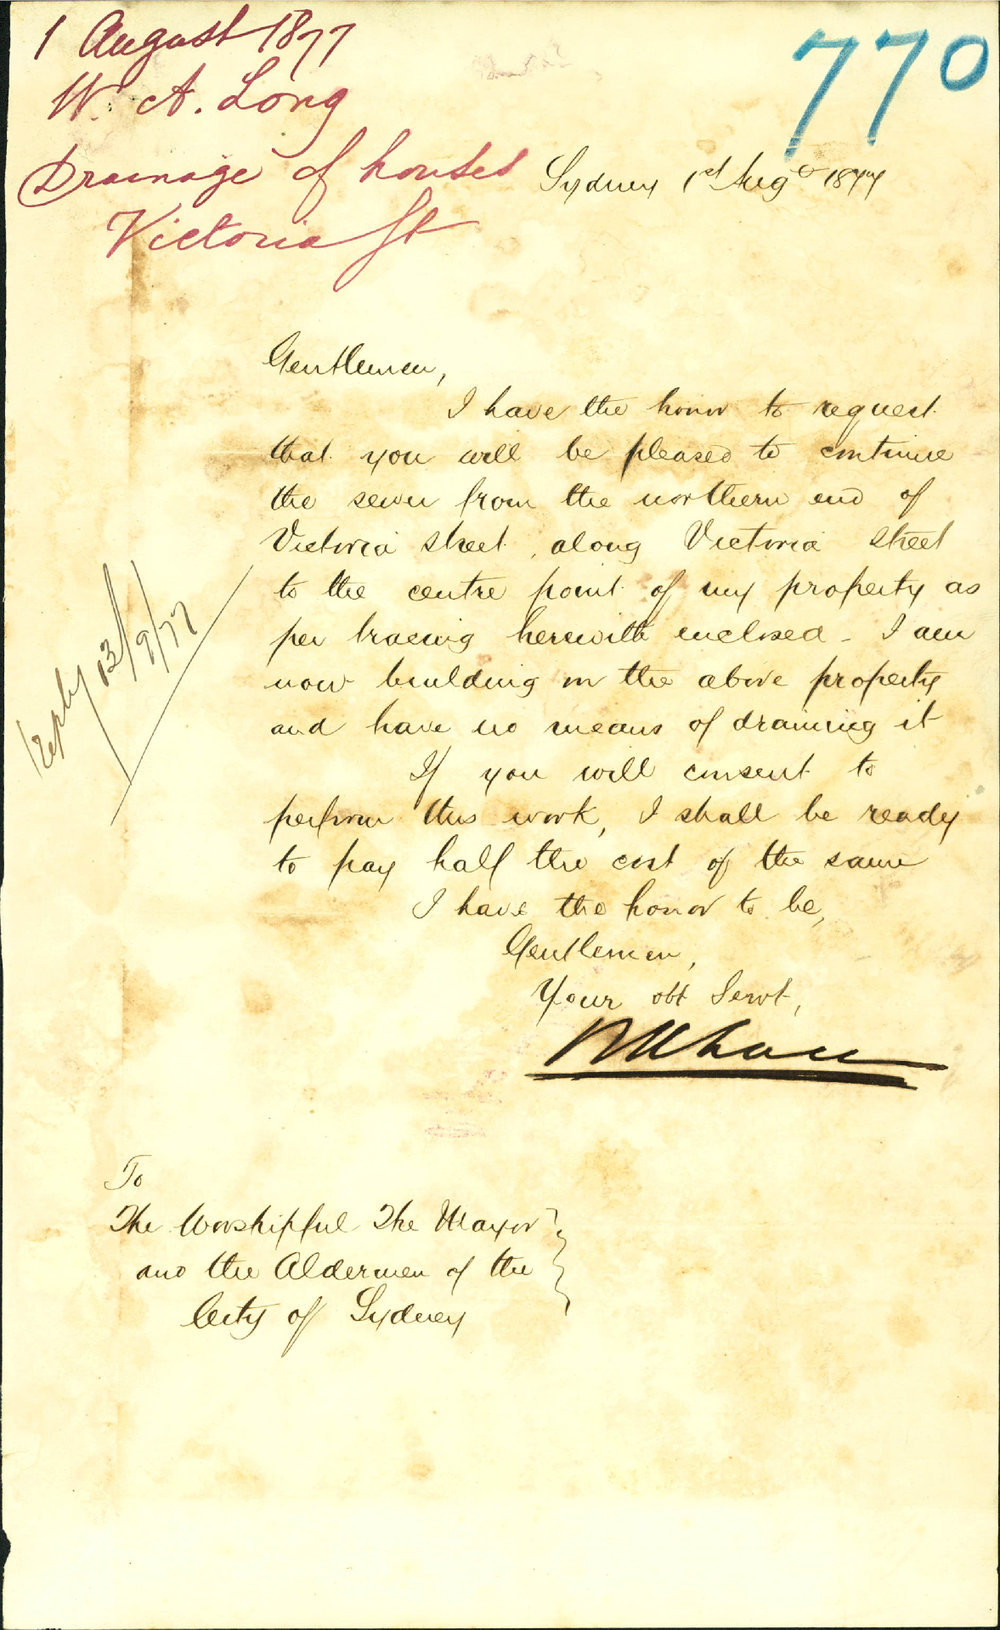 1 August 1877
W. A. Long
Drainage of houses
Victoria St
770
Sydney 1st Aug 1877
Gentlemen,
I have the honor to request
that you will be pleased to continue
the sewer from the northern end of
Victoria Street, along Victoria Street
to the centre point of my property as
per tracing herewith enclosed - I am
now building on the above property
and have no means of draining it
If you will consent to
perform this work, I shall be ready
to pay half the cost of the same
I have the honor to be,
Gentlemen,
Your obt Servt,
Reply 13/9/77
To
The Worshipful The Mayor
and the Aldermen of the
City of Sydney